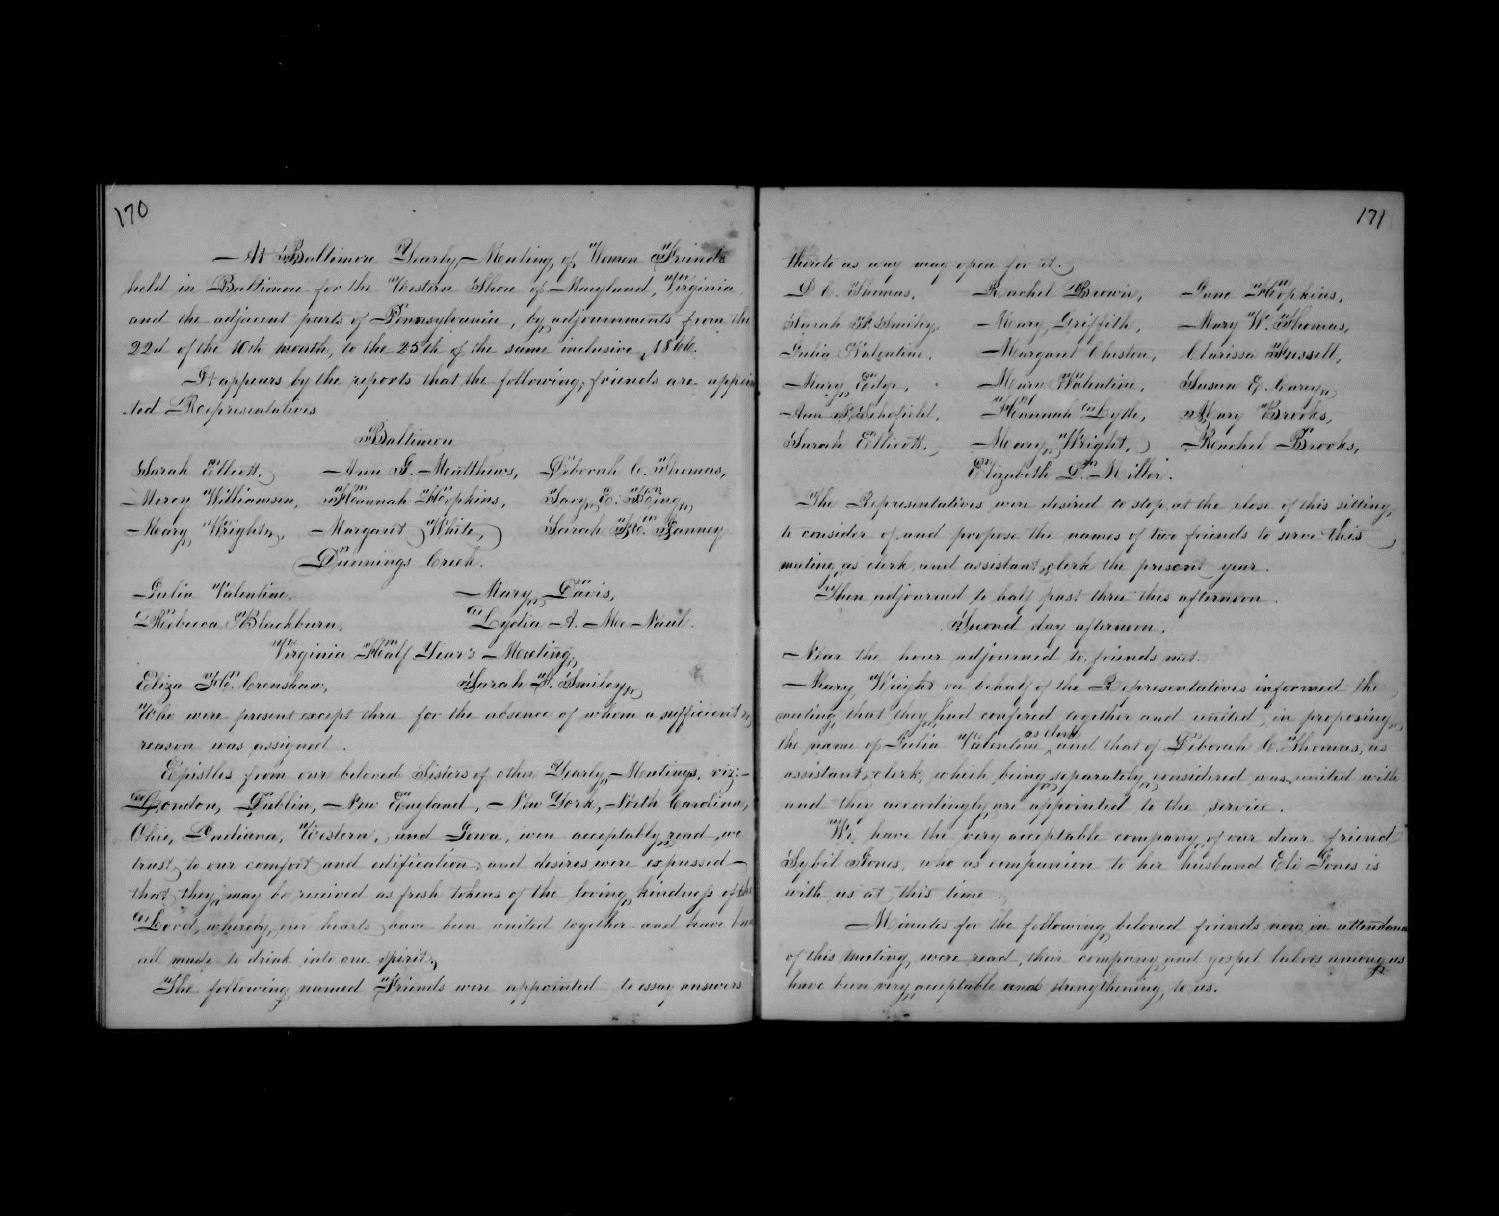 170
At Baltimore Yearly Meeting of Women Friends
held in Baltimore for the Western Shore of Maryland, Virginia
and the adjacent parts of Pennsylvania, by adjournments from the
22d of the 10th month, to the 25th of the same inclusive, 1866.
It appears by the reports that the following friends are appoin
ted Representatives
Baltimore
Sarah Ellicott. Ann G. Matthews, Deborah C. Thomas,
Mercy Williamson, Hannah Hopkins, E. King,
Mary Wright, Margaret White, Sarah H. Janney
Dunnings Creek.
Julia Valentine. Mary Davis,
Rebecca Blackburn. Lydia A. Mc Naul.
Virginia Half Year's Meeting
Eliza H. Crenshaw, Sarah F. Smiley,
Who were present except three for the absence of whom a sufficient
reason was assigned.
Epistles from our beloved Sisters of other Yearly Meetings, viz:—
London, Dublin, New England, New York, North Carolina,
Ohio, Indiana, Western, and Iowa, were acceptably read, we
trust, to our comfort and edification; and desires were expressed
that they may be received as fresh tokens of the loving kindness of the
Lord, whereby our hearts have been united together and have been
all made to drink into one spirit.
The following named Friends were appointed to essay answers
171
thereto as way may open for it.
D C. Thomas, Rachel Brown, Jane Hopkins,
Sarah F. Smiley, Mary Griffith, Mary W. Thomas,
Julia Valentine. Margaret Cheston, Clarissa Fussell,
Mary Edge, Mary Valentine, Susan E. Carey
Ann Schofield, Hannah Lyde, Mary Brooks,
Sarah Ellicott. Mary Wright, Rachel Brooks,
Elizabeth D. Miller.
The Representatives were desired to stop at the close of this sitting,
to consider of and propose the names of two friends to serve this
meeting as clerk and assistant clerk the present year.
Then adjourned to half past three this afternoon.
Second day afternoon.
Near the hour adjourned to, friends met.
Mary Wright on behalf of the Representatives informed the
meeting that they had confered together and united in proposing
the name of Julia Valentine as clerk and that of Deborah C. Thomas, as
assistant clerk, which being separately considered was united with
and they accordingly are appointed to the service.
We have the very acceptable company of our dear friend
Sybil Jones, who as companion to her husband Eli Jones is
with us at this time
Minutes for the following beloved friends now in attendance
of this meeting, were read, their company and gospel labors among us
have been very acceptable and strengthening to us.